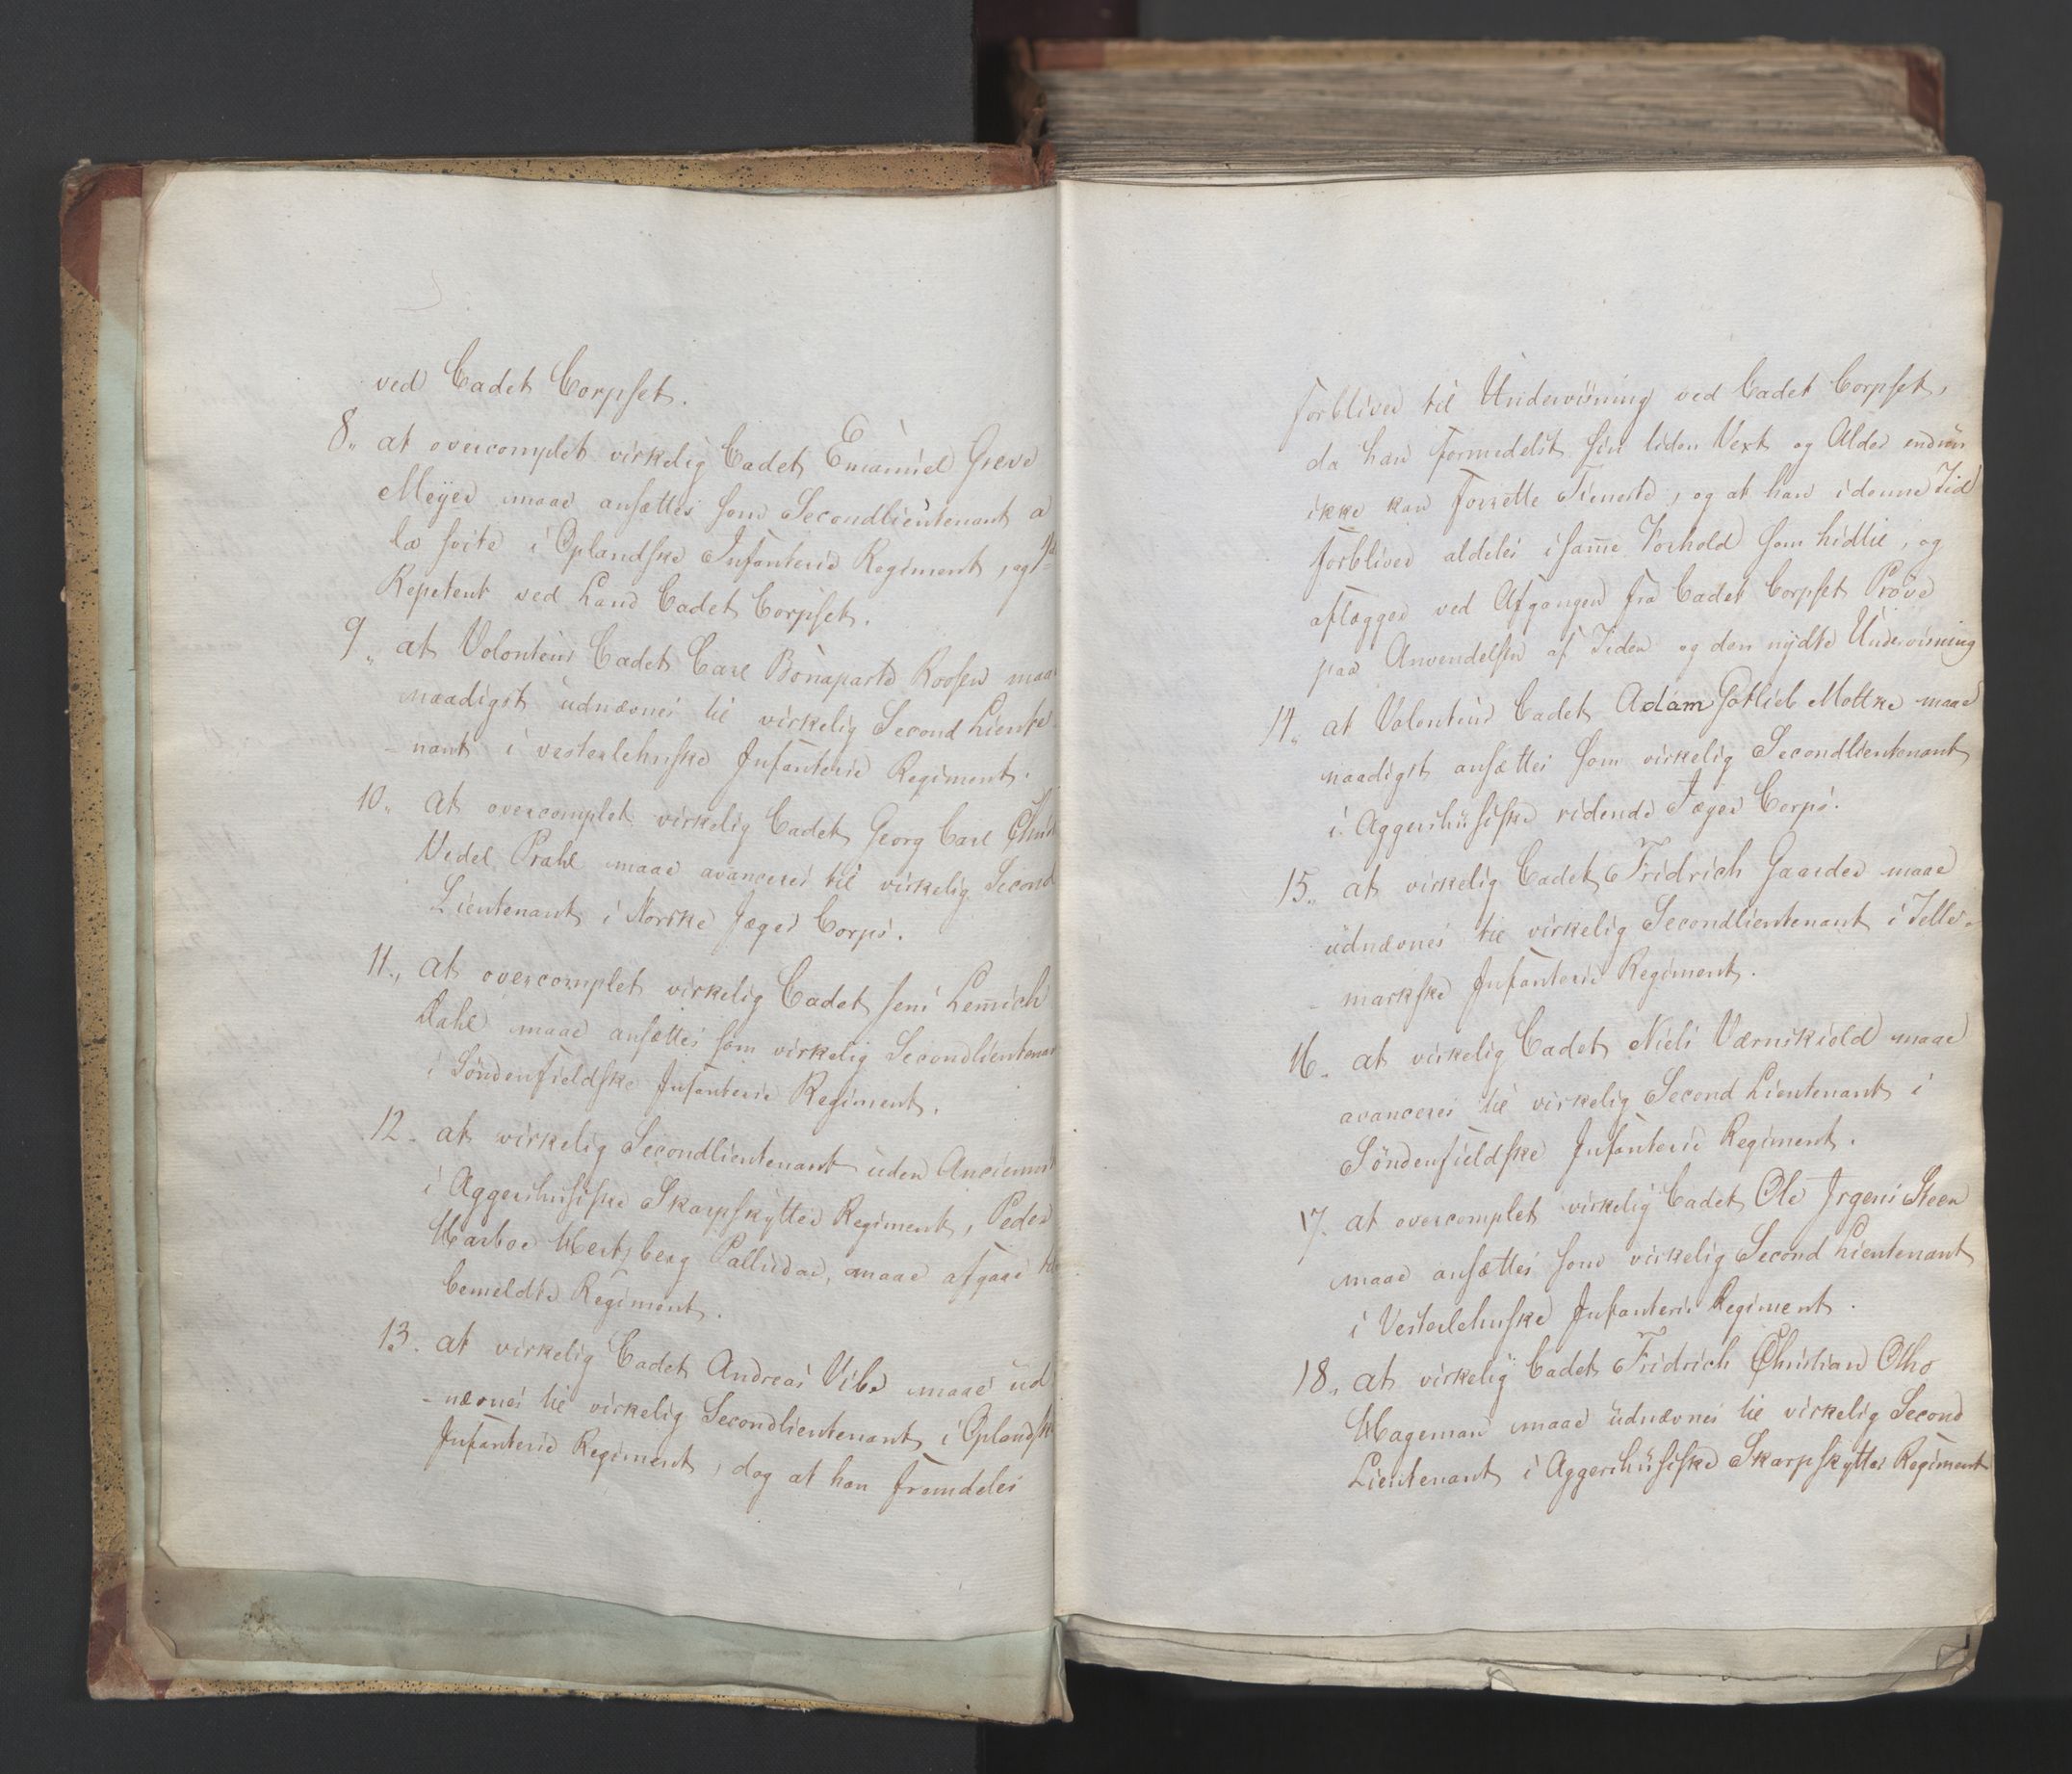 ved Cadet Corpset.
8. at overcomplet virkelig Cadet Emanuel Greve
Meÿer maae ansættes som Secondlieutenant a
la svite i Oplandske Infanterie Regiment, og
Repetent ved Land Cadet Corpset.
9. at Volonteur Cadet Carl Bonaparte Roosen maae
naadigst udnævnes til virkelig Second Lieute-
-nant i vesterlehnske Infanterie Regiment.
10. at overcomplet virkelig Cadet Georg Carl Christ
Vedel Prahl maae avanceres til virkelig Second
Lieutenant i Norske Jæger Corps.
11. at overcomplet virkelig Cadet Jens Lemich
Dahl maae ansættes som virkelig Secondlieutenant
i Söndenfieldske Infanterie Regiment.
12. at virkelig Secondlieutenant uden Anciennit
i Aggershusiske Skarpskytter Regiment, Peder
Harboe Hertzberg Palludan, maae afgaae til
bemeldte Regiment.
13. at virkelig Cadet Andreas Vibe maae ud
-nævnes til virkelig Secondlieutenant i Oplandske
Infanterie Regiment, dog at han fremdeles
forbliver til Underviisning ved Cadet Corpset,
da han formedelst sin liden Vext og Alder endnu
ikke kan forrette Tieneste, og at han i denne Tid
forbliver aldeles i samme Forhold som hidtil, og
aflægger ved Afgangen fra Cadet Corpset Pröve
paa Anvendelsen af Tiden og den nÿdte Underviisning
14. at Volonteur Cadet Adam Gotlieb Moltke maae
naadigst ansættes som virkelig Secondlieutenant
i Aggershusiske ridende Jæger Corps.
15. at virkelig Cadet Fridrich Gaarder maae
udnævnes til virkelig Secondlieutenant i Telle-
-markske Infanterie Regiment.
16. at virkelig Cadet Niels Værnskiold maae
avanceres til virkelig Second Lieutenant i
Söndenfieldske Infanterie Regiment.
17. at overcomplet virkelig Cadet Ole Irgens Steen
maae ansættes som virkelig Second Lieutenant
i Vesterlehnske Infanterie Regiment.
18. at virkelig Cadet Fridrich Christian Otho
Hageman maae udnævnes til virkelig Second
Lieutenant i Aggershusiske Skarpskytter Regiment